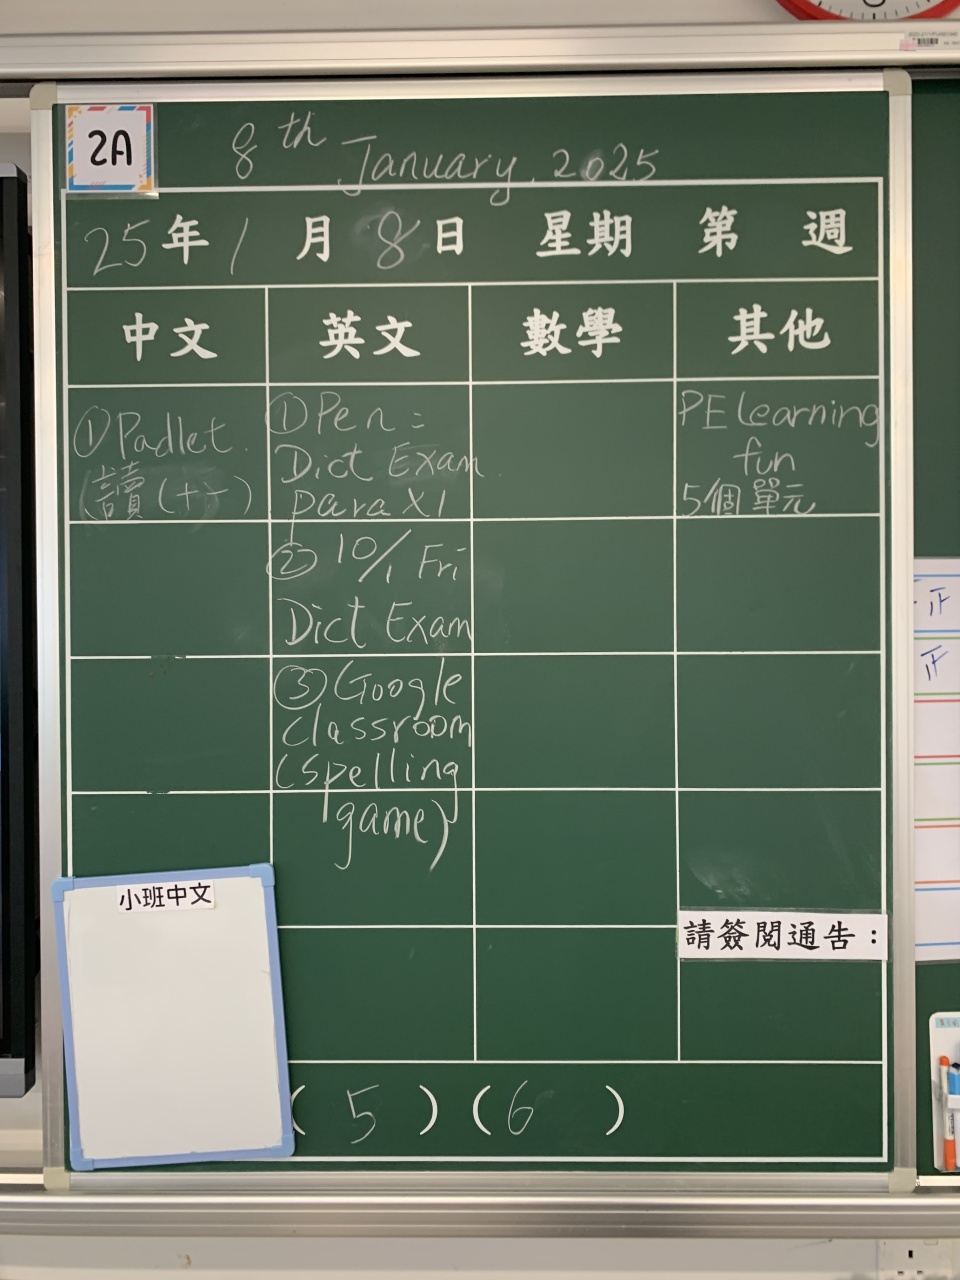 2A
8th January, 2025
25年1月8日 星期 第 週
中文 英文 數學 其他
①Padlet
(讀(十一)
①Pen:
Dict Exam
para X1
②10/1 Fri
Dict Exam
③Google
classroom
(spelling
game)
PE learning
fun
5個單元
小班中文
請簽閱通告：
( 5 ) ( 6 )
正
正